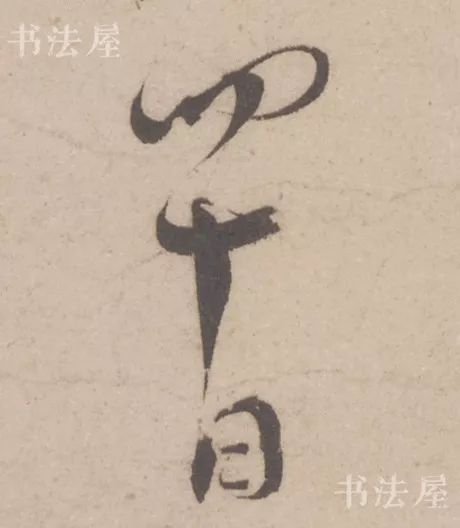 书法屋
四十日
书法屋